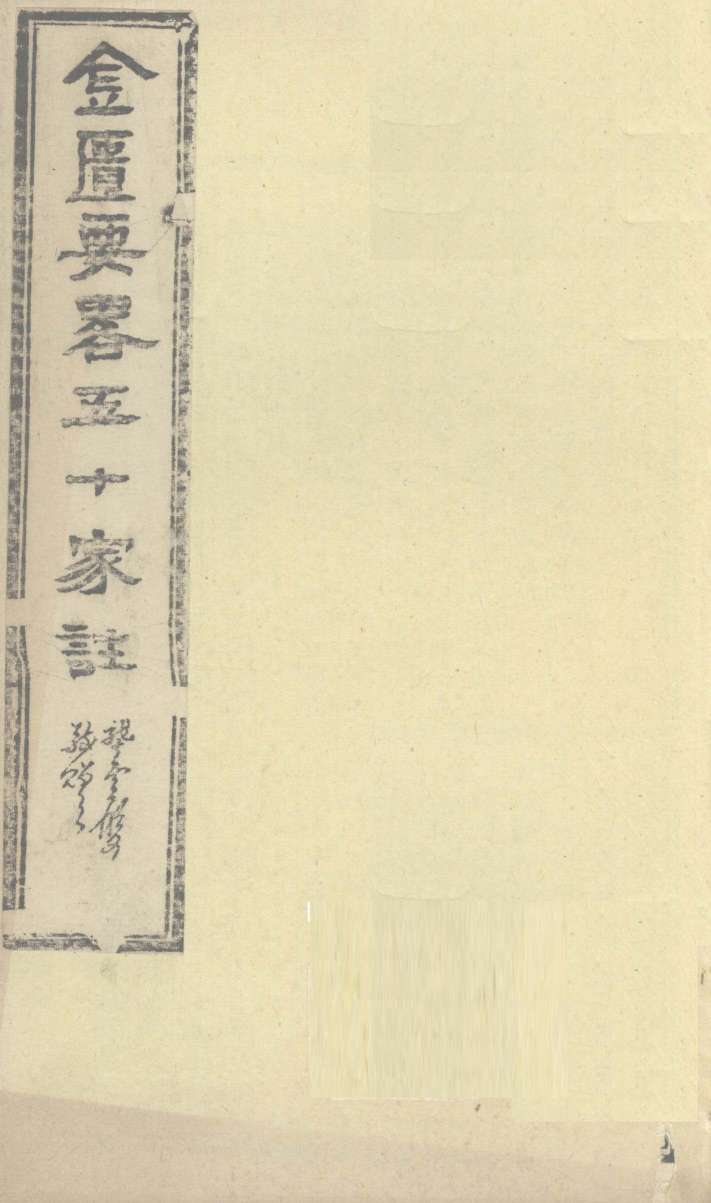 金匱要畧五十家註
敬贈